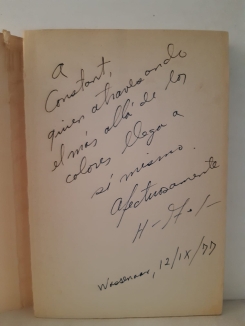 A
Constant,
quien atravesando
el más allá de los
colores llega a
sí mismo.
Afectuosamente
Wassenaar, 12/IX/77